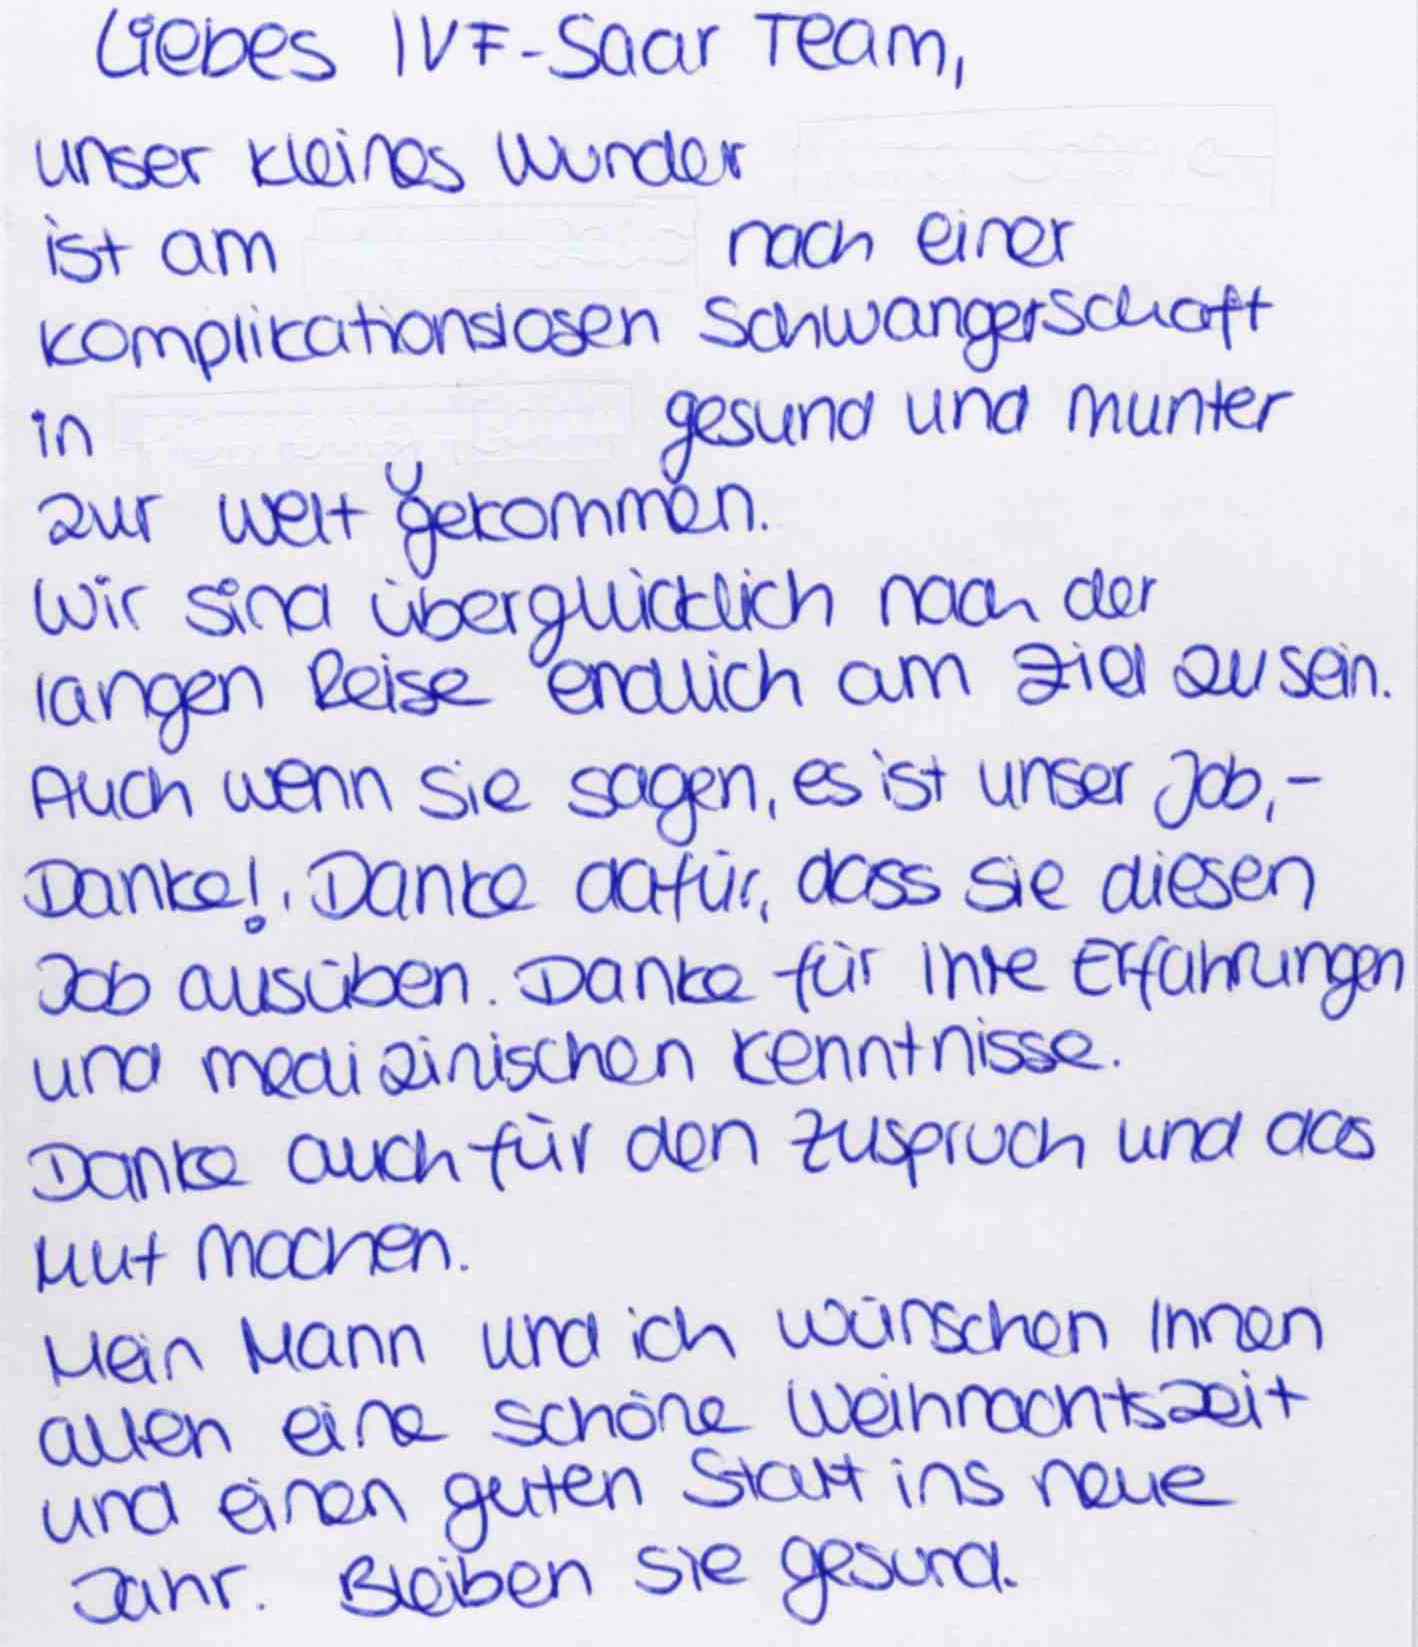 Liebes IVF-Saar Team,
unser kleines Wunder
ist am nach einer
komplikationslosen Schwangerschaft
in gesund und munter
zur Welt gekommen.
Wir sind überglücklich nach der
langen Reise endlich am Ziel zu sein.
Auch wenn sie sagen, es ist unser Job,-
Danke!. Danke dafür, dass sie diesen
Job ausüben. Danke für Ihre Erfahrungen
und medizinischen Kenntnisse.
Danke auch für den Zuspruch und das
Mut machen.
Mein Mann und ich wünschen Ihnen
allen eine schöne Weihnachtszeit
und einen guten Start ins neue
Jahr. Bleiben sie gesund.